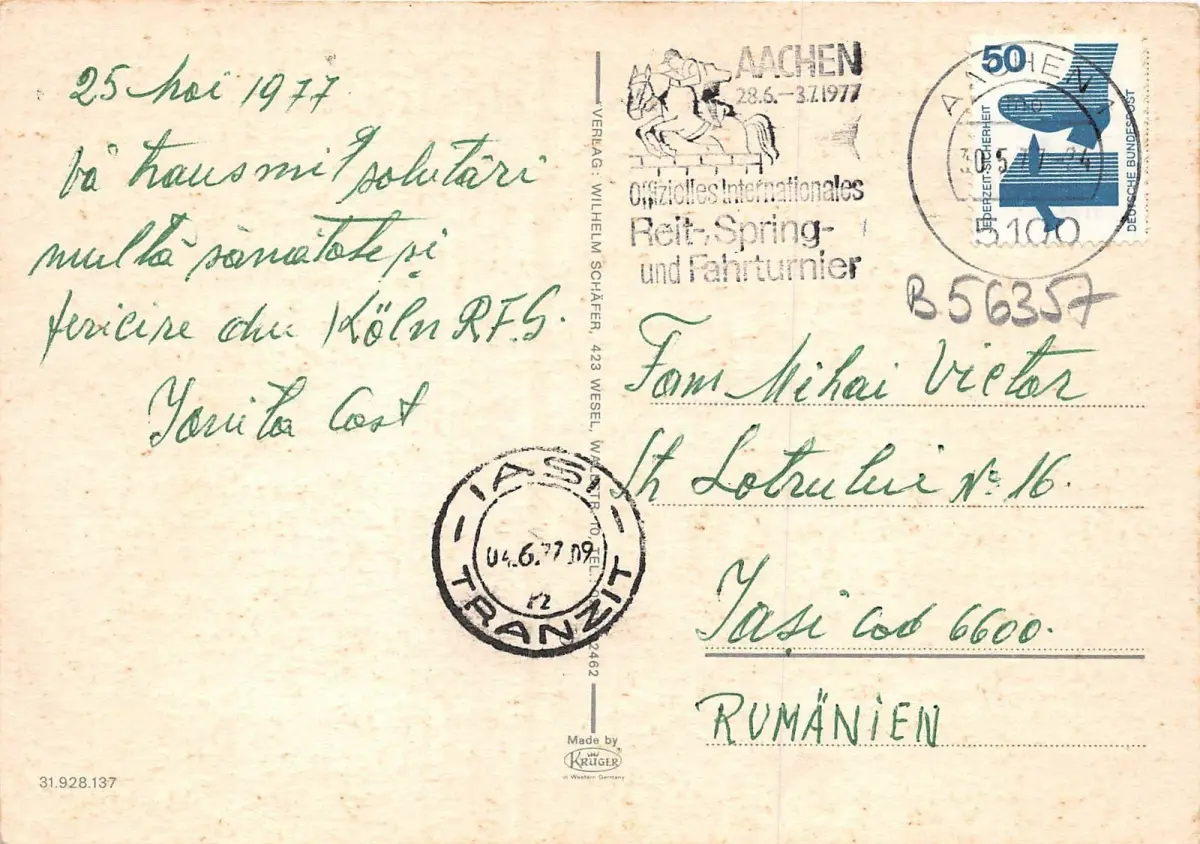 25 Mai 1977
Vă transmit salutări
multă sănătate și
fericire din Köln R.F.G.
Ioniță Cost
VERLAG: WILHELM SCHÄFER, 423 WESEL, WALLSTR. 10, TEL. 2462
Made by
KRÜGER
in Western Germany
31.928.137
IASI
04.6.77.09
TRANZIT
AACHEN
28.6.–3.7.1977
Offizielles Internationales
Reit-, Spring-
und Fahrturnier
AACHEN 1
30.5.77-24
5100
50
JEDERZEIT SICHERHEIT
DEUTSCHE BUNDESPOST
B56357
Fam Mihai Victor
Str Lotrului No 16.
Iasi cod 6600.
RUMÄNIEN